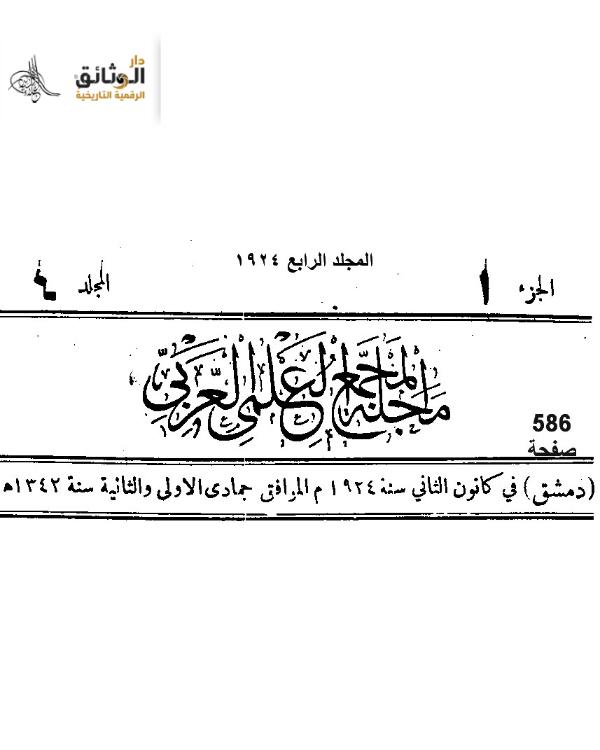 دار
الوثائق
الرقمية التاريخية
المجلد الرابع ١٩٢٤
الجزء ١ المجلد ٤
مجلة المجمع العلمي العربي
586
صفحة
(دمشق) في كانون الثاني سنة ١٩٢٤ م الموافق جمادى الاولى والثانية سنة ١٣٤٢ه